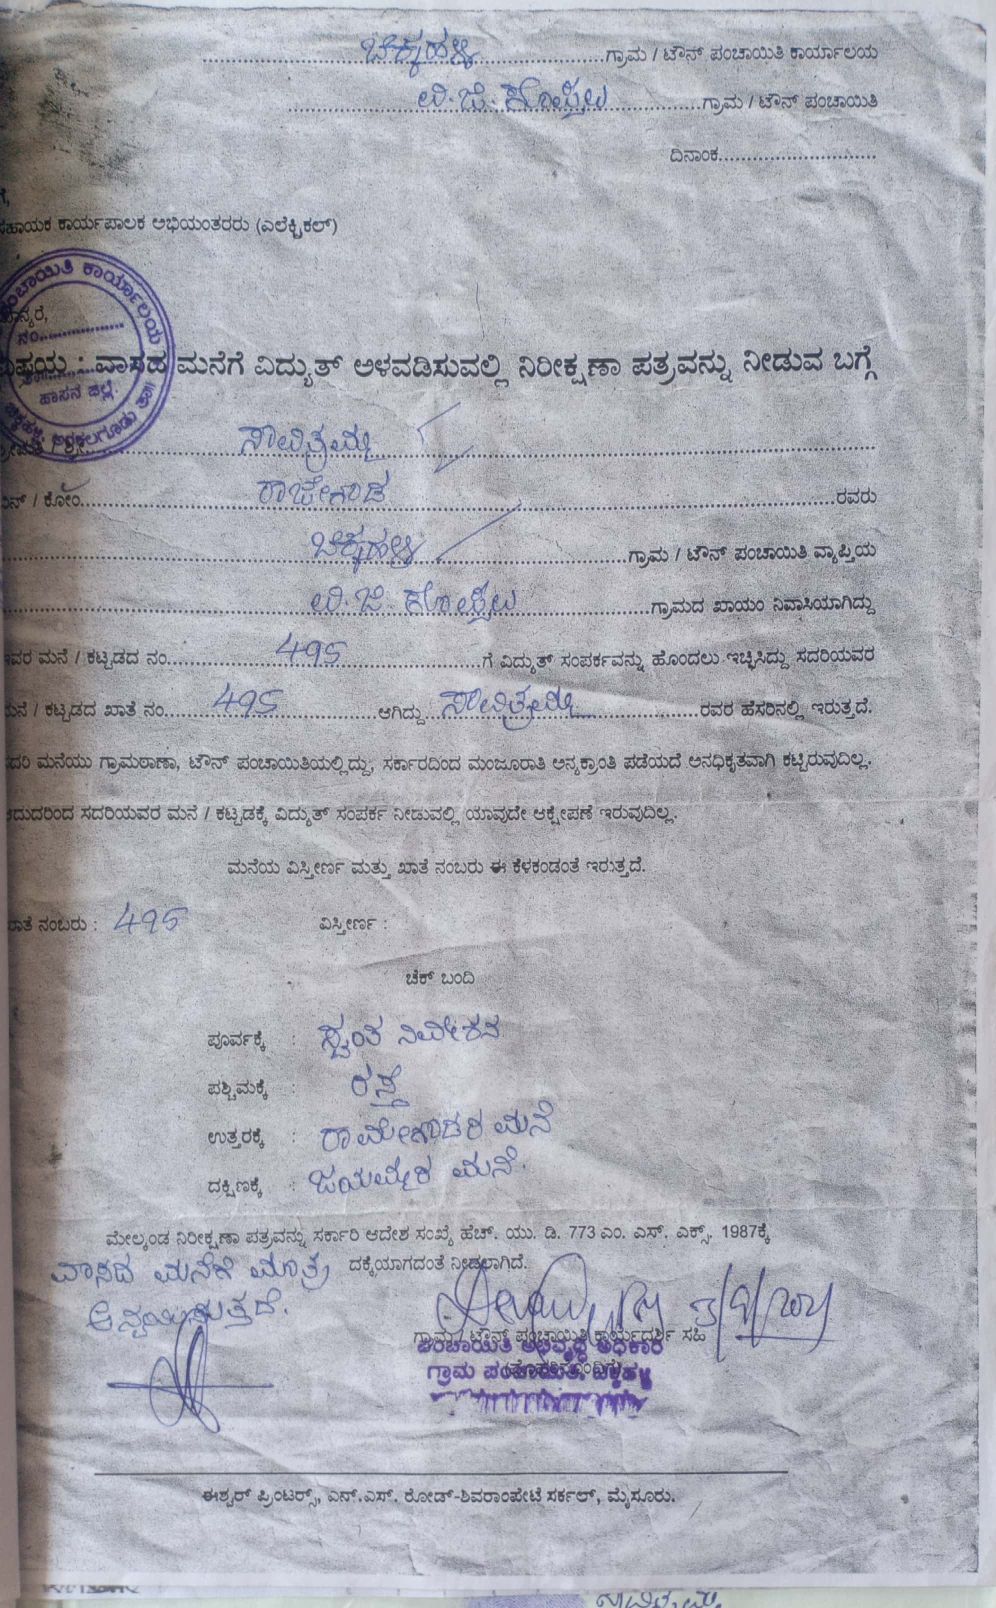 ಚಿಕ್ಕಹಳ್ಳಿ ಗ್ರಾಮ / ಟೌನ್ ಪಂಚಾಯಿತಿ ಕಾರ್ಯಾಲಯ
ಟಿ.ಜಿ. ಕೊಪ್ಪಲು ಗ್ರಾಮ / ಟೌನ್ ಪಂಚಾಯಿತಿ
ದಿನಾಂಕ
ಸಹಾಯಕ ಕಾರ್ಯಪಾಲಕ ಅಭಿಯಂತರರು (ಎಲೆಕ್ಟ್ರಿಕಲ್)
ಪಂಚಾಯಿತಿ ಕಾರ್ಯಾಲಯ
ನಂ
ಹಾಸನ ಜಿಲ್ಲೆ.
ಚಿಕ್ಕಹಳ್ಳಿ, ಅರಕಲಗೂಡು ತಾ॥
ಮಾನ್ಯರೆ,
ವಿಷಯ : ವಾಸದ ಮನೆಗೆ ವಿದ್ಯುತ್ ಅಳವಡಿಸುವಲ್ಲಿ ನಿರೀಕ್ಷಣಾ ಪತ್ರವನ್ನು ನೀಡುವ ಬಗ್ಗೆ
ಶ್ರೀಮತಿ / ಶ್ರೀ ಸಾವಿತ್ರಮ್ಮ
ಬಿನ್ / ಕೋಂ ರಾಜೇಗೌಡ ರವರು
ಚಿಕ್ಕಹಳ್ಳಿ ಗ್ರಾಮ / ಟೌನ್ ಪಂಚಾಯಿತಿ ವ್ಯಾಪ್ತಿಯ
ಟಿ.ಜಿ. ಕೊಪ್ಪಲು ಗ್ರಾಮದ ಖಾಯಂ ನಿವಾಸಿಯಾಗಿದ್ದು
ಇವರ ಮನೆ / ಕಟ್ಟಡದ ನಂ. 495 ಗೆ ವಿದ್ಯುತ್ ಸಂಪರ್ಕವನ್ನು ಹೊಂದಲು ಇಚ್ಛಿಸಿದ್ದು ಸದರಿಯವರ
ಮನೆ / ಕಟ್ಟಡದ ಖಾತೆ ನಂ. 495 ಆಗಿದ್ದು ಸಾವಿತ್ರಮ್ಮ ರವರ ಹೆಸರಿನಲ್ಲಿ ಇರುತ್ತದೆ.
ಸದರಿ ಮನೆಯು ಗ್ರಾಮಠಾಣಾ, ಟೌನ್ ಪಂಚಾಯಿತಿಯಲ್ಲಿದ್ದು, ಸರ್ಕಾರದಿಂದ ಮಂಜೂರಾತಿ ಅನ್ಯಕ್ರಾಂತಿ ಪಡೆಯದೆ ಅನಧಿಕೃತವಾಗಿ ಕಟ್ಟಿರುವುದಿಲ್ಲ.
ಆದುದರಿಂದ ಸದರಿಯವರ ಮನೆ / ಕಟ್ಟಡಕ್ಕೆ ವಿದ್ಯುತ್ ಸಂಪರ್ಕ ನೀಡುವಲ್ಲಿ ಯಾವುದೇ ಆಕ್ಷೇಪಣೆ ಇರುವುದಿಲ್ಲ.
ಮನೆಯ ವಿಸ್ತೀರ್ಣ ಮತ್ತು ಖಾತೆ ನಂಬರು ಈ ಕೆಳಕಂಡಂತೆ ಇರುತ್ತದೆ.
ಖಾತೆ ನಂಬರು : 495 ವಿಸ್ತೀರ್ಣ :
ಚೆಕ್ ಬಂದಿ
ಪೂರ್ವಕ್ಕೆ : ಸ್ವಂತ ನಿವೇಶನ
ಪಶ್ಚಿಮಕ್ಕೆ : ರಸ್ತೆ
ಉತ್ತರಕ್ಕೆ : ರಾಮೇಗೌಡರ ಮನೆ
ದಕ್ಷಿಣಕ್ಕೆ : ಜಯಮ್ಮರ ಮನೆ.
ಮೇಲ್ಕಂಡ ನಿರೀಕ್ಷಣಾ ಪತ್ರವನ್ನು ಸರ್ಕಾರಿ ಆದೇಶ ಸಂಖ್ಯೆ ಹೆಚ್. ಯು. ಡಿ. 773 ಎಂ. ಎಸ್. ಎಕ್ಸ್. 1987ಕ್ಕೆ
ದಕ್ಕೆಯಾಗದಂತೆ ನೀಡಲಾಗಿದೆ.
ವಾಸದ ಮನೆಗೆ ಮಾತ್ರ
ಅನ್ವಯಿಸುತ್ತದೆ.
ಗ್ರಾಮ / ಟೌನ್ ಪಂಚಾಯಿತಿ ಕಾರ್ಯದರ್ಶಿ ಸಹಿ
ಪಂಚಾಯಿತಿ ಅಭಿವೃದ್ಧಿ ಅಧಿಕಾರಿ
(ಮೊಹರಿನೊಂದಿಗೆ)
ಗ್ರಾಮ ಪಂಚಾಯಿತಿ, ಚಿಕ್ಕಹಳ್ಳಿ
ಈಶ್ವರ್ ಪ್ರಿಂಟರ್ಸ್, ಎನ್.ಎಸ್. ರೋಡ್-ಶಿವರಾಂಪೇಟೆ ಸರ್ಕಲ್, ಮೈಸೂರು.
ಸಾವಿತ್ರಮ್ಮ